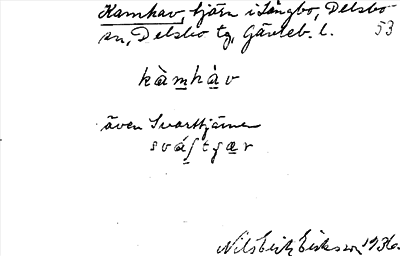 Kamhav, tjärn i Långbo, Delsbo
sn, Delsbo tg, Gävleb. l. 53
kàmháv
även Svarttjärnen
sváʃtʃær
Nils Erik Eriksson 1936.